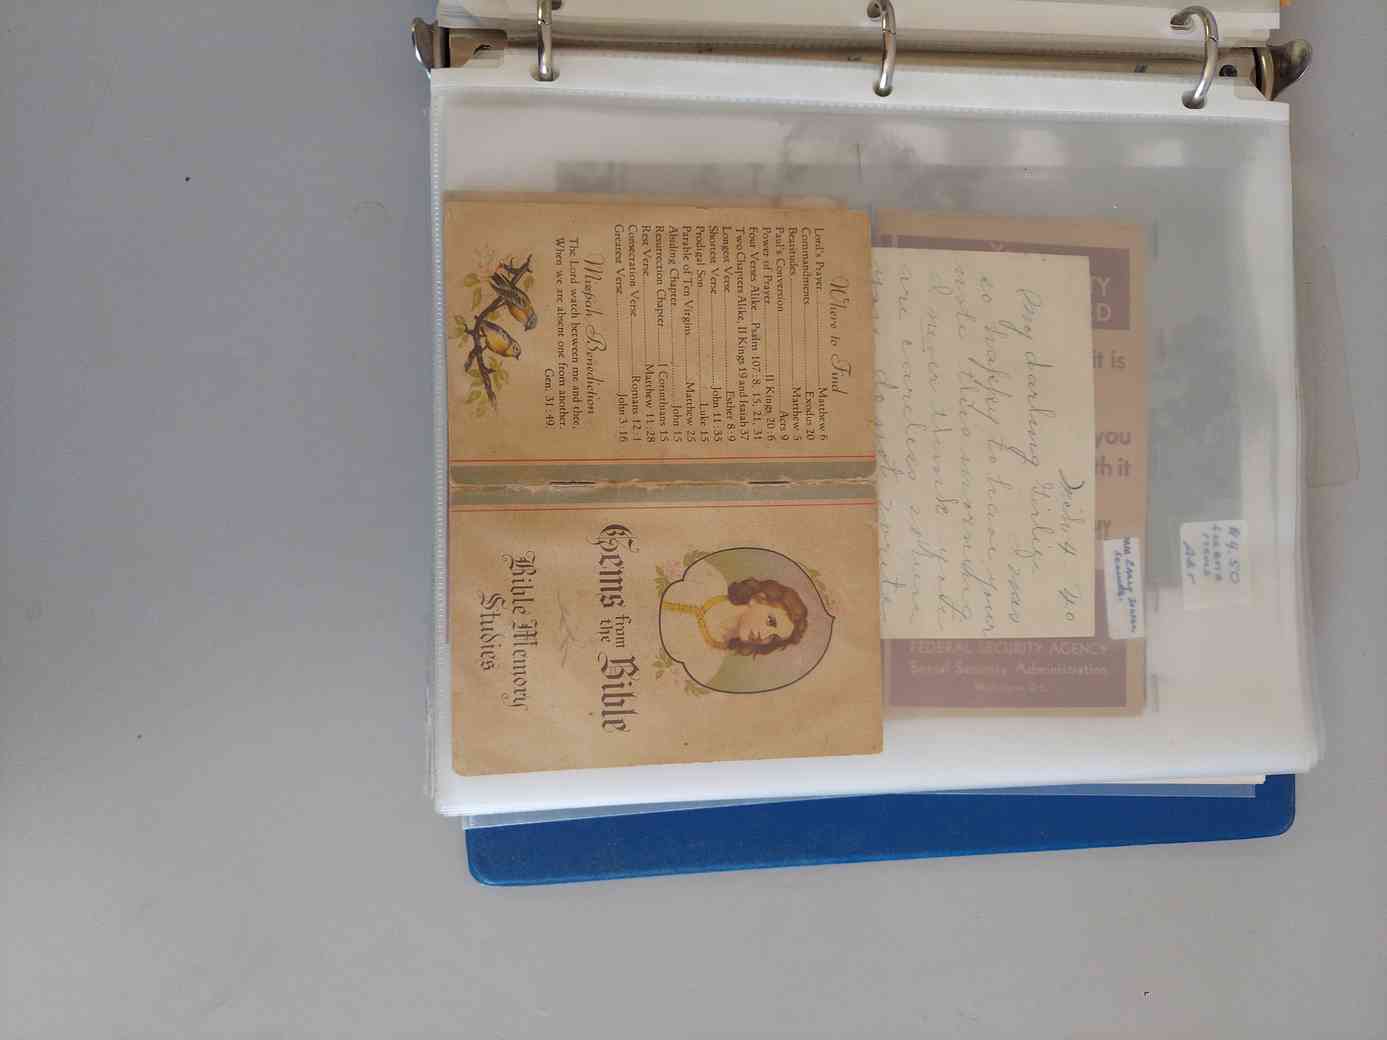 Where to Find
Lord's Prayer Matthew 6
Commandments Exodus 20
Beatitudes Matthew 5
Paul's Conversion Acts 9
Power of Prayer II Kings 20:6
Four Verses Alike Psalm 107:8, 15, 21, 31
Two Chapters Alike, II Kings 19 and Isaiah 37
Longest Verse Esther 8:9
Shortest Verse John 11:35
Prodigal Son Luke 15
Parable of Ten Virgins Matthew 25
Abiding Chapter John 15
Resurrection Chapter I Corinthians 15
Rest Verse Matthew 11:28
Consecration Verse Romans 12:1
Greatest Verse John 3:16
Mizpah Benediction
The Lord watch between me and thee,
When we are absent one from another.
Gen. 31:49.
Gems from the Bible
Bible Memory
Studies
My darling Girlie
so happy to have your
note this morning
I never think you
are careless when
you do not write
TY
D
it is
you
th it
FEDERAL SECURITY AGENCY
Social Security Administration